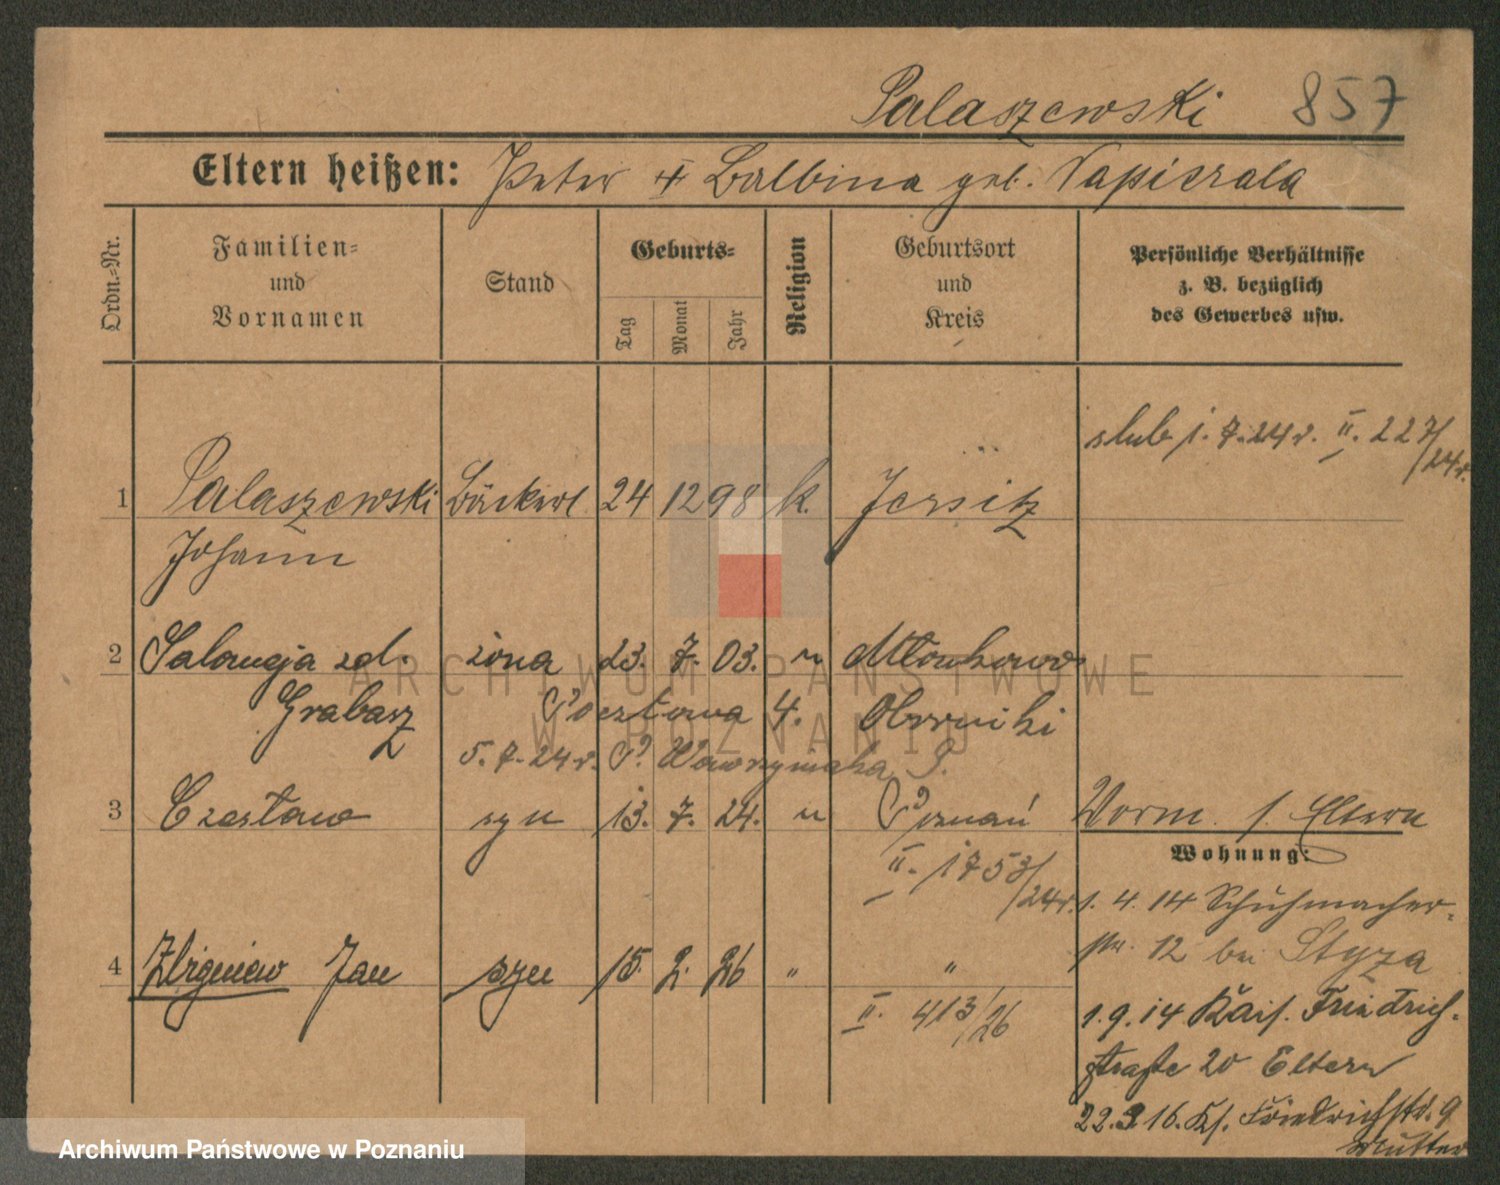 Palaszewski 857
Eltern heißen: Peter + Balbina geb. Napierala
Ordn.-Nr.
Familien-
und
Vornamen
Stand
Geburts-
Tag
Monat
Jahr
Religion
Geburtsort
und
Kreis
Persönliche Verhältnisse
z. B. bezüglich
des Gewerbes usw.
ślub 1. 7. 24 r. II. 227/24 r.
1 Palaszewski 24 12 98 k. Jersitz
Johann
2 Salomeja zd. żona 23. 7. 03. "
Grabasz Pocztowa 4. Oborniki
5. 7. 24 r. P. Wawrzyniaka
3 Czesław syn 13. 7. 24. " Poznań
II. 1753/24 r.
4 Zbigniew Jan syn 15. 2. 26 " "
II. 413/26
Vorm. s. Eltern
Wohnung:
1. 4. 14 Schuhmacher-
str. 12 bei Styza
1. 9. 14 Kais. Friedrich-
straße 20 Eltern
22. 3. 16. Ks. Friedrichstr. 9
Mutter
ARCHIWUM PAŃSTWOWE
W POZNANIU
Archiwum Państwowe w Poznaniu